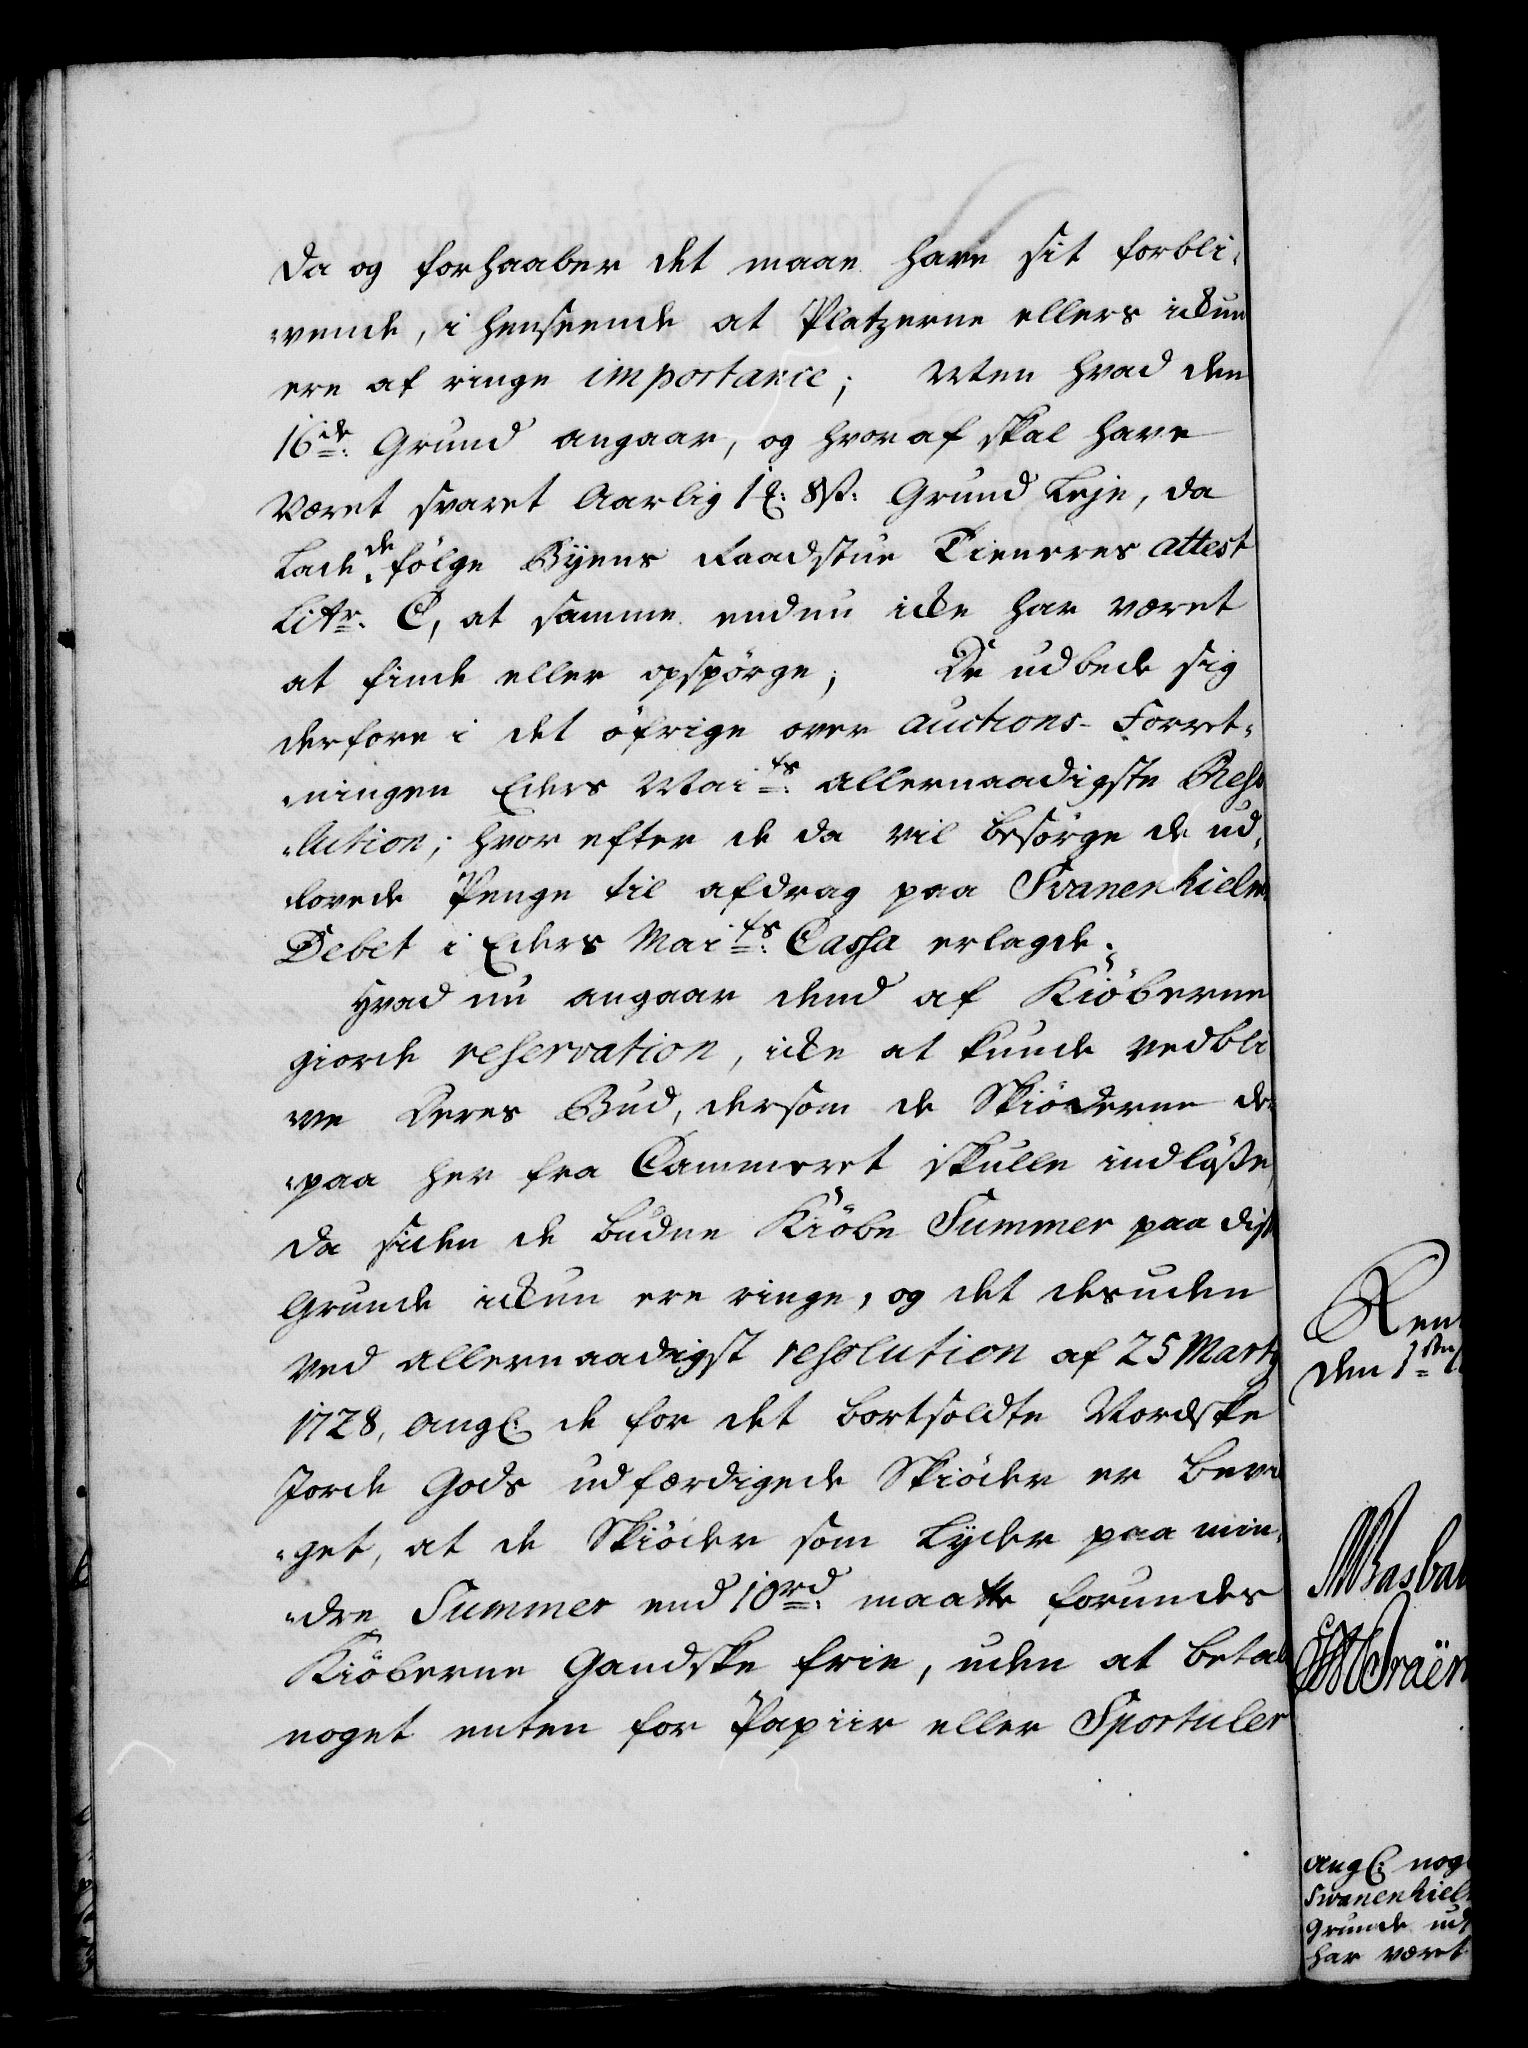 da og forhaaber det maae have sit forbli-
-vende, i henseende at Platzerne ellers ickun
ere af ringe importance; Men hvad den
16de Grund angaar, og hvoraf skal have
Været svaret Aarlig 1 8 ß: Grund Leje, da
Lade de følge Byens Raadstue Tieneres attest
Litr. C, at samme endnu icke har været
at finde eller opspørge; De udbede sig
derfore i det öfrige over auctions-Forret-
-ningen Eders Maits allernaadigste Reso
-lution; hvor efter de da vil besørge de ud-
-lovede Penge til afdrag paa Svanenhielms
Debet i Eders Maits: Cassa erlagde.
Hvad nu angaar dend af Kiöberne
giorde reservation, icke at kunde vedbli
-ve deres Bud, dersom de Skiöderne der
-paa her fra Cammeret skulle indlösze,
da siden de budne Kiöbe Summer paa disse
Grunde ickun ere ringe, og det desuden
Ved allernaadigst resolution af 25 Marty
1728, angl: de for det bortsoldte Nordske
Jorde Gods udfærdigede Skiöder er bevil
-get, at de Skiöder som lyder paa min-
-dre Summer end 10rd: maatte forundes
Kiöberne Gandske frie, uden at betale
noget enten for Papiir eller Sportuler
Ren
den 1ste
angl: nog
Svanenhiel
Grunde ud
har været